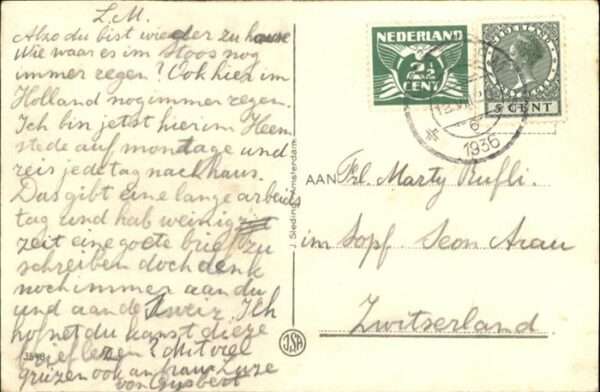 L.M.
Also du bist wieder zu hause
Wie waar es im Stoos nog
immer regen? Ook hier im
Holland nog immer regen.
Ich bin jetst hier im Heem
stede auf montage und
reis jede tag nach haus.
Das gibt eine lange arbeids
tag und hab weinig
zeit eine goete brief zu
schreiben doch denk
noch immer aan du
und aan de Sweiz. Ich
hof net du kanst dieze
brief lezen? Mit viel
gruzen ook an frau Luze
von Gijsbert
NEDERLAND
2½
CENT
5 CENT
6
1936
AAN Frl. Marty Rufli.
im Sopf. Seon Arau
Zwitserland.
J. Sleding, Amsterdam
JSA